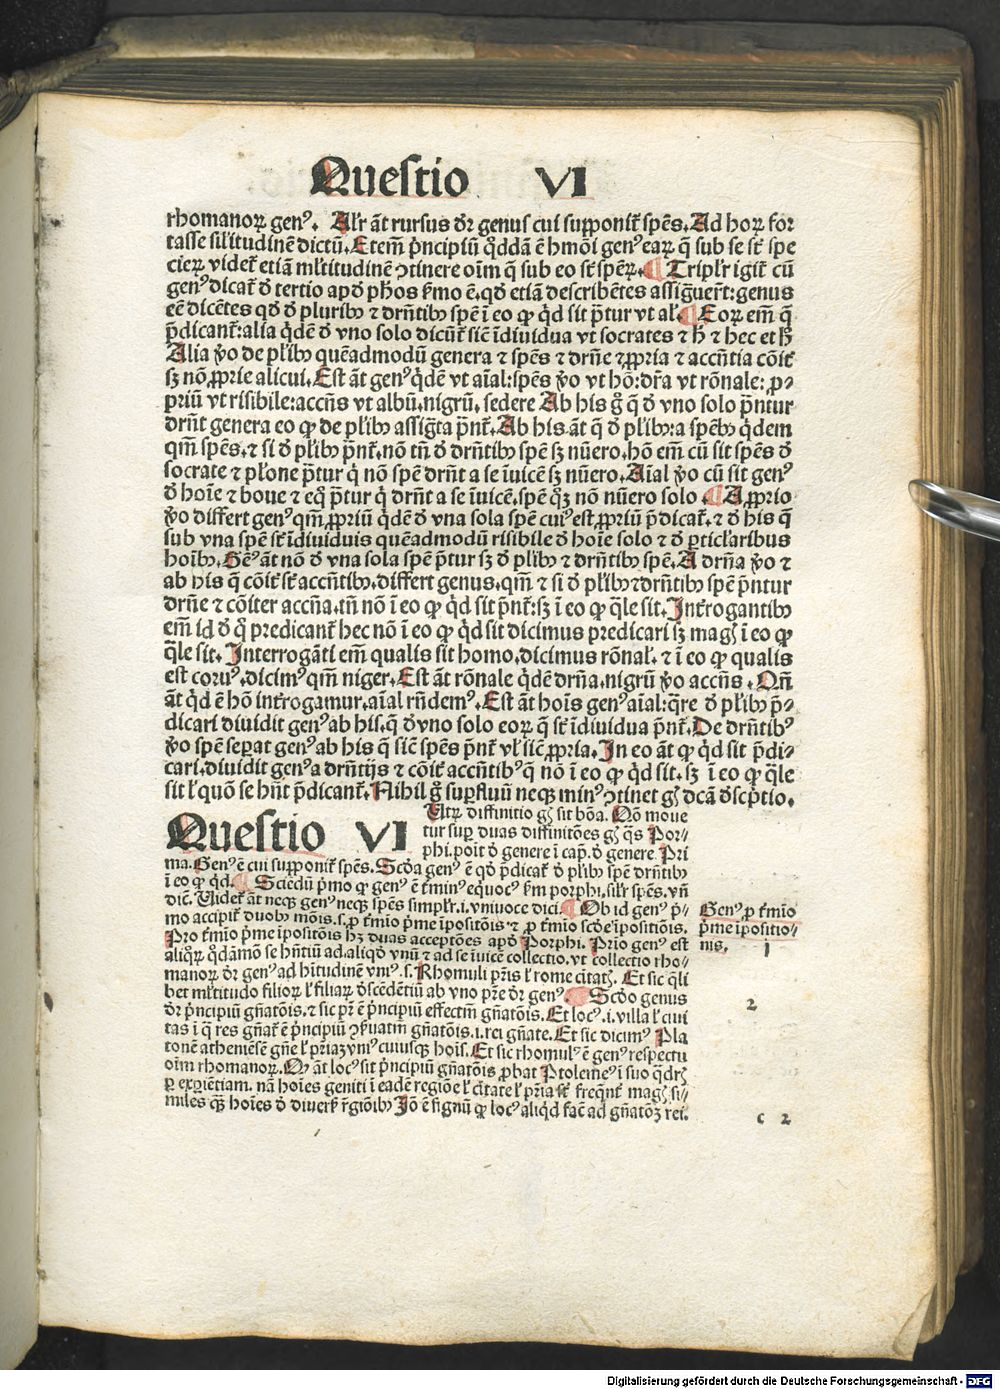 Questio VI
rhomanoꝝ genꝰ. Alr̄ āt rursus dr̄ genus cui supponit᷑ spēs. Ad hoꝝ for
tasse sil̄itudinē dictū. Etem̄ pͥncipiū qͦddā ē hm̄ōi genꝰ eaꝝ q̄ sub se st̄ spe
cieꝝ videt᷑ etiā ml̄titudinē ꝯtinere oīm q̄ sub eo st̄ spēꝝ. ¶ Tripl̄r igit᷑ cū
genꝰ dicat᷑ ꝺ tertio apꝺ pħos ẜmo ē. qꝺ etiā describētes assig̅uer̄t: genus
eē dicētes qꝺ ꝺ pluribꝰ ⁊ dr̄ntibꝰ spē ī eo ꝙ qͥd sit pr̄tur vt aīal. ¶ Eoꝝ em̄ q̄
p̄dicant᷑: alia qͥdē ꝺ vno solo dicūt᷑ sic̄ īdiuidua vt socrates ⁊ ħ ⁊ hec et ħ
Alia ꝟo de pl̄ibꝰ quēadmodū genera ⁊ spēs ⁊ dr̄ne ⁊ ꝓpria ⁊ accn̄tia cōit᷑
sꝫ nō ꝓprie alicui. Est āt genꝰ qͥdē vt aīal: spēs ꝟo vt hō: dr̄a vt rōnale: ꝓ-
priū vt risibile: accn̄s vt albū, nigrū, sedere Ab his gͦ q̄ ꝺ vno solo p̄ntur
dr̄nt genera eo ꝙ de pl̄ibꝰ assig̅ta p̄nt᷑. Ab his āt q̄ ꝺ pl̄ibꝰ: a spēbꝰ qͥdem
qm̄ spēs. ⁊ si ꝺ pl̄ibꝰ p̄nt᷑. nō tn̄ ꝺ dr̄ntibꝰ spē sꝫ nūero. hō em̄ cū sit spēs ꝺ
socrate ⁊ pl̄one p̄tur qͥ nō spē dr̄nt a se īuicē sꝫ nūero. Aīal ꝟo cū sit genꝰ
ꝺ hoīe ⁊ boue ⁊ eqͦ p̄tur qͥ dr̄nt a se īuicē. spē qͦꝫ nō nūero solo. ¶ A ꝓprio
ꝟo differt genꝰ qm̄ ꝓpriū qͥdē ꝺ vna sola spē cuiꝰ est ꝓpriū p̄dicat᷑. ⁊ ꝺ his q̄
sub vna spē st̄ īdiuiduis quēadmodū risibile ꝺ hoīe solo ⁊ ꝺ ꝑticl̄aribus
hoībꝰ. Gēꝰ āt nō ꝺ vna sola spē p̄tur sꝫ ꝺ pl̄ibꝰ ⁊ dr̄ntibꝰ spē. A dr̄na ꝟo ⁊
ab his q̄ cōit᷑ st̄ accn̄tibꝰ. differt genus. qm̄ ⁊ si ꝺ pl̄ibꝰ ⁊ dr̄ntibꝰ spē p̄ntur
dr̄ne ⁊ cōiter accn̄a. tn̄ nō ī eo ꝙ qͥd sit p̄nt᷑: sꝫ ī eo ꝙ q̄le sit. Int᷑rogantibꝰ
em̄ id ꝺ qͦ predicant᷑ hec nō ī eo ꝙ qͥd sit dicimus predicari sꝫ magꝭ ī eo ꝙ
q̄le sit. Interrogāti em̄ qualis sit homo. dicimus rōnal᷑. ⁊ ī eo ꝙ qualis
est coruꝰ. dicimꝰ qm̄ niger. Est āt rōnale qͥdē dr̄na. nigrū ꝟo accn̄s. Qn̄
āt qͥd ē hō int᷑rogamur. aīal rn̄demꝰ. Est āt hoīs genꝰ aīal: q̄re ꝺ pl̄ibꝰ p̄-
dicari diuidit genꝰ ab his. q̄ ꝺ vno solo eoꝝ q̄ st̄ īdiuidua p̄nt᷑. De dr̄ntibꝰ
ꝟo spē seꝑat genꝰ ab his q̄ sic̄ spēs p̄nt᷑ vl᷑ sic̄ ꝓpria. In eo āt ꝙ qͥd sit p̄di-
cari. diuidit genꝰ a dr̄ntijs ⁊ cōit᷑ accn̄tibꝰ q̄ nō ī eo ꝙ qͥd sit. sꝫ ī eo ꝙ q̄le
sit l᷑ quō se hn̄t p̄dicant᷑. Nihil gͦ suꝑfluū neqꝫ minꝰ ꝯtinet gn̄ꝭ dcā ꝺscͥptio.
Questio VI
Utꝝ diffinitio gn̄ꝭ sit bōa. Qō moue
tur suꝑ duas diffinitōes gn̄ꝭ qͣs Por-
phi. poit ꝺ genere ī cap. ꝺ genere. Pri
ma. Genꝰ ē cui supponit᷑ spēs. Scꝺa genꝰ ē qꝺ p̄dicat᷑ ꝺ pl̄ibꝰ spē dr̄ntibꝰ
ī eo ꝙ qͥd. ¶ Sciēdū pͥmo ꝙ genꝰ ē t᷑minꝰ eqͥuocꝰ ẜm porphi. sil̄r spēs. vn̄
dic̄. Videt᷑ āt neqꝫ genꝰ neqꝫ spēs simpl̄r .i. vniuoce dici. ¶ Ob id genꝰ pͥ-
mo accipit᷑ duobꝰ mōis .s. ꝓ t᷑mīo pͥme īpositōis ⁊ ꝓ t᷑mīo scꝺe īpositiōis.
Pro t᷑mīo pͥme īpositōis hꝫ duas acceptōes apꝺ Porphi. Prīo genꝰ est
aliqͦꝝ qͦdāmō se hn̄tiū ad aliqꝺ vnū ⁊ ad se īuicē collectio. vt collectio rho-
manoꝝ dr̄ genꝰ ad hītudinē vniꝰ .s. Rhomuli pn̄s l᷑ rome cītatꝭ. Et sic qͣli
bet ml̄titudo filioꝝ l᷑ filiaꝝ ꝺscēdētiū ab vno pr̄e dr̄ genꝰ. ¶ Scꝺo genus
dr̄ pͥncipiū gn̄atōis. ⁊ sic pr̄ ē pͥncipiū effectīm gn̄atōis. Et locꝰ .i. villa l᷑ cui
tas ī q̄ res gn̄at᷑ ē pͥncipiū ꝯẜuatīm gn̄atōis .i. rei gn̄ate. Et sic dicimꝰ Pla
tonē atheniēsē gn̄e l᷑ pr̄iaꝫ vniꝰ cuiusqꝫ hoīs. Et sic rhomulꝰ ē genꝰ respectu
oīm rhomanoꝝ. Qꝫ āt locꝰ sit pͥncipiū gn̄atōis ꝓbat Ptolemeꝰ ī suo qͣdrꝭ
ꝑ exꝑiētiam. nā hoīes geniti ī eadē regiōe l᷑ cītate l᷑ pr̄ia st̄ freqn̄t᷑ magꝭ si-
miles qͣꝫ hoīes ꝺ diuerẜ r̄giōibꝰ Iō ē signū ꝙ locꝰ aliqͥd fac̄ ad gn̄atōꝫ rei.
Genꝰ ꝓ t᷑mīo
pͥme īpositio-
nis. 1
2
c 2
Digitalisierung gefördert durch die Deutsche Forschungsgemeinschaft - DFG